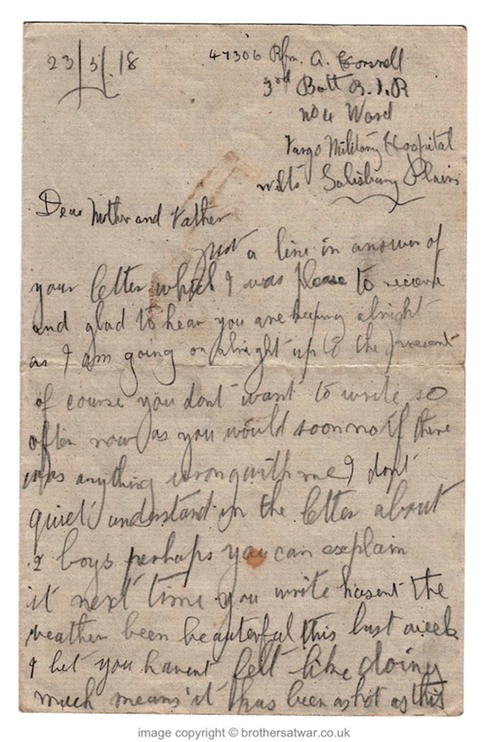 23/5/.18
47306 Rfm. A. Connell
3rd Batt R.I.R
No 4 Ward
Fargo Military Hospital
Wilts Salisbury Plain
Dear Mother and Father
Just a line in answer of
your letter which I was please to receive
and glad to hear you are keeping alright
as I am going on alright up to the present
of course you dont want to write so
often now as you would soon no if there
was anything wrong with me I dont
quiet understand in the letter about
2 boys perhaps you can explain
it next time you write hasent the
weather been beauterful this last week
I bet you havent felt like doing
much means it has been as hot as this
image copyright © brothersatwar.co.uk